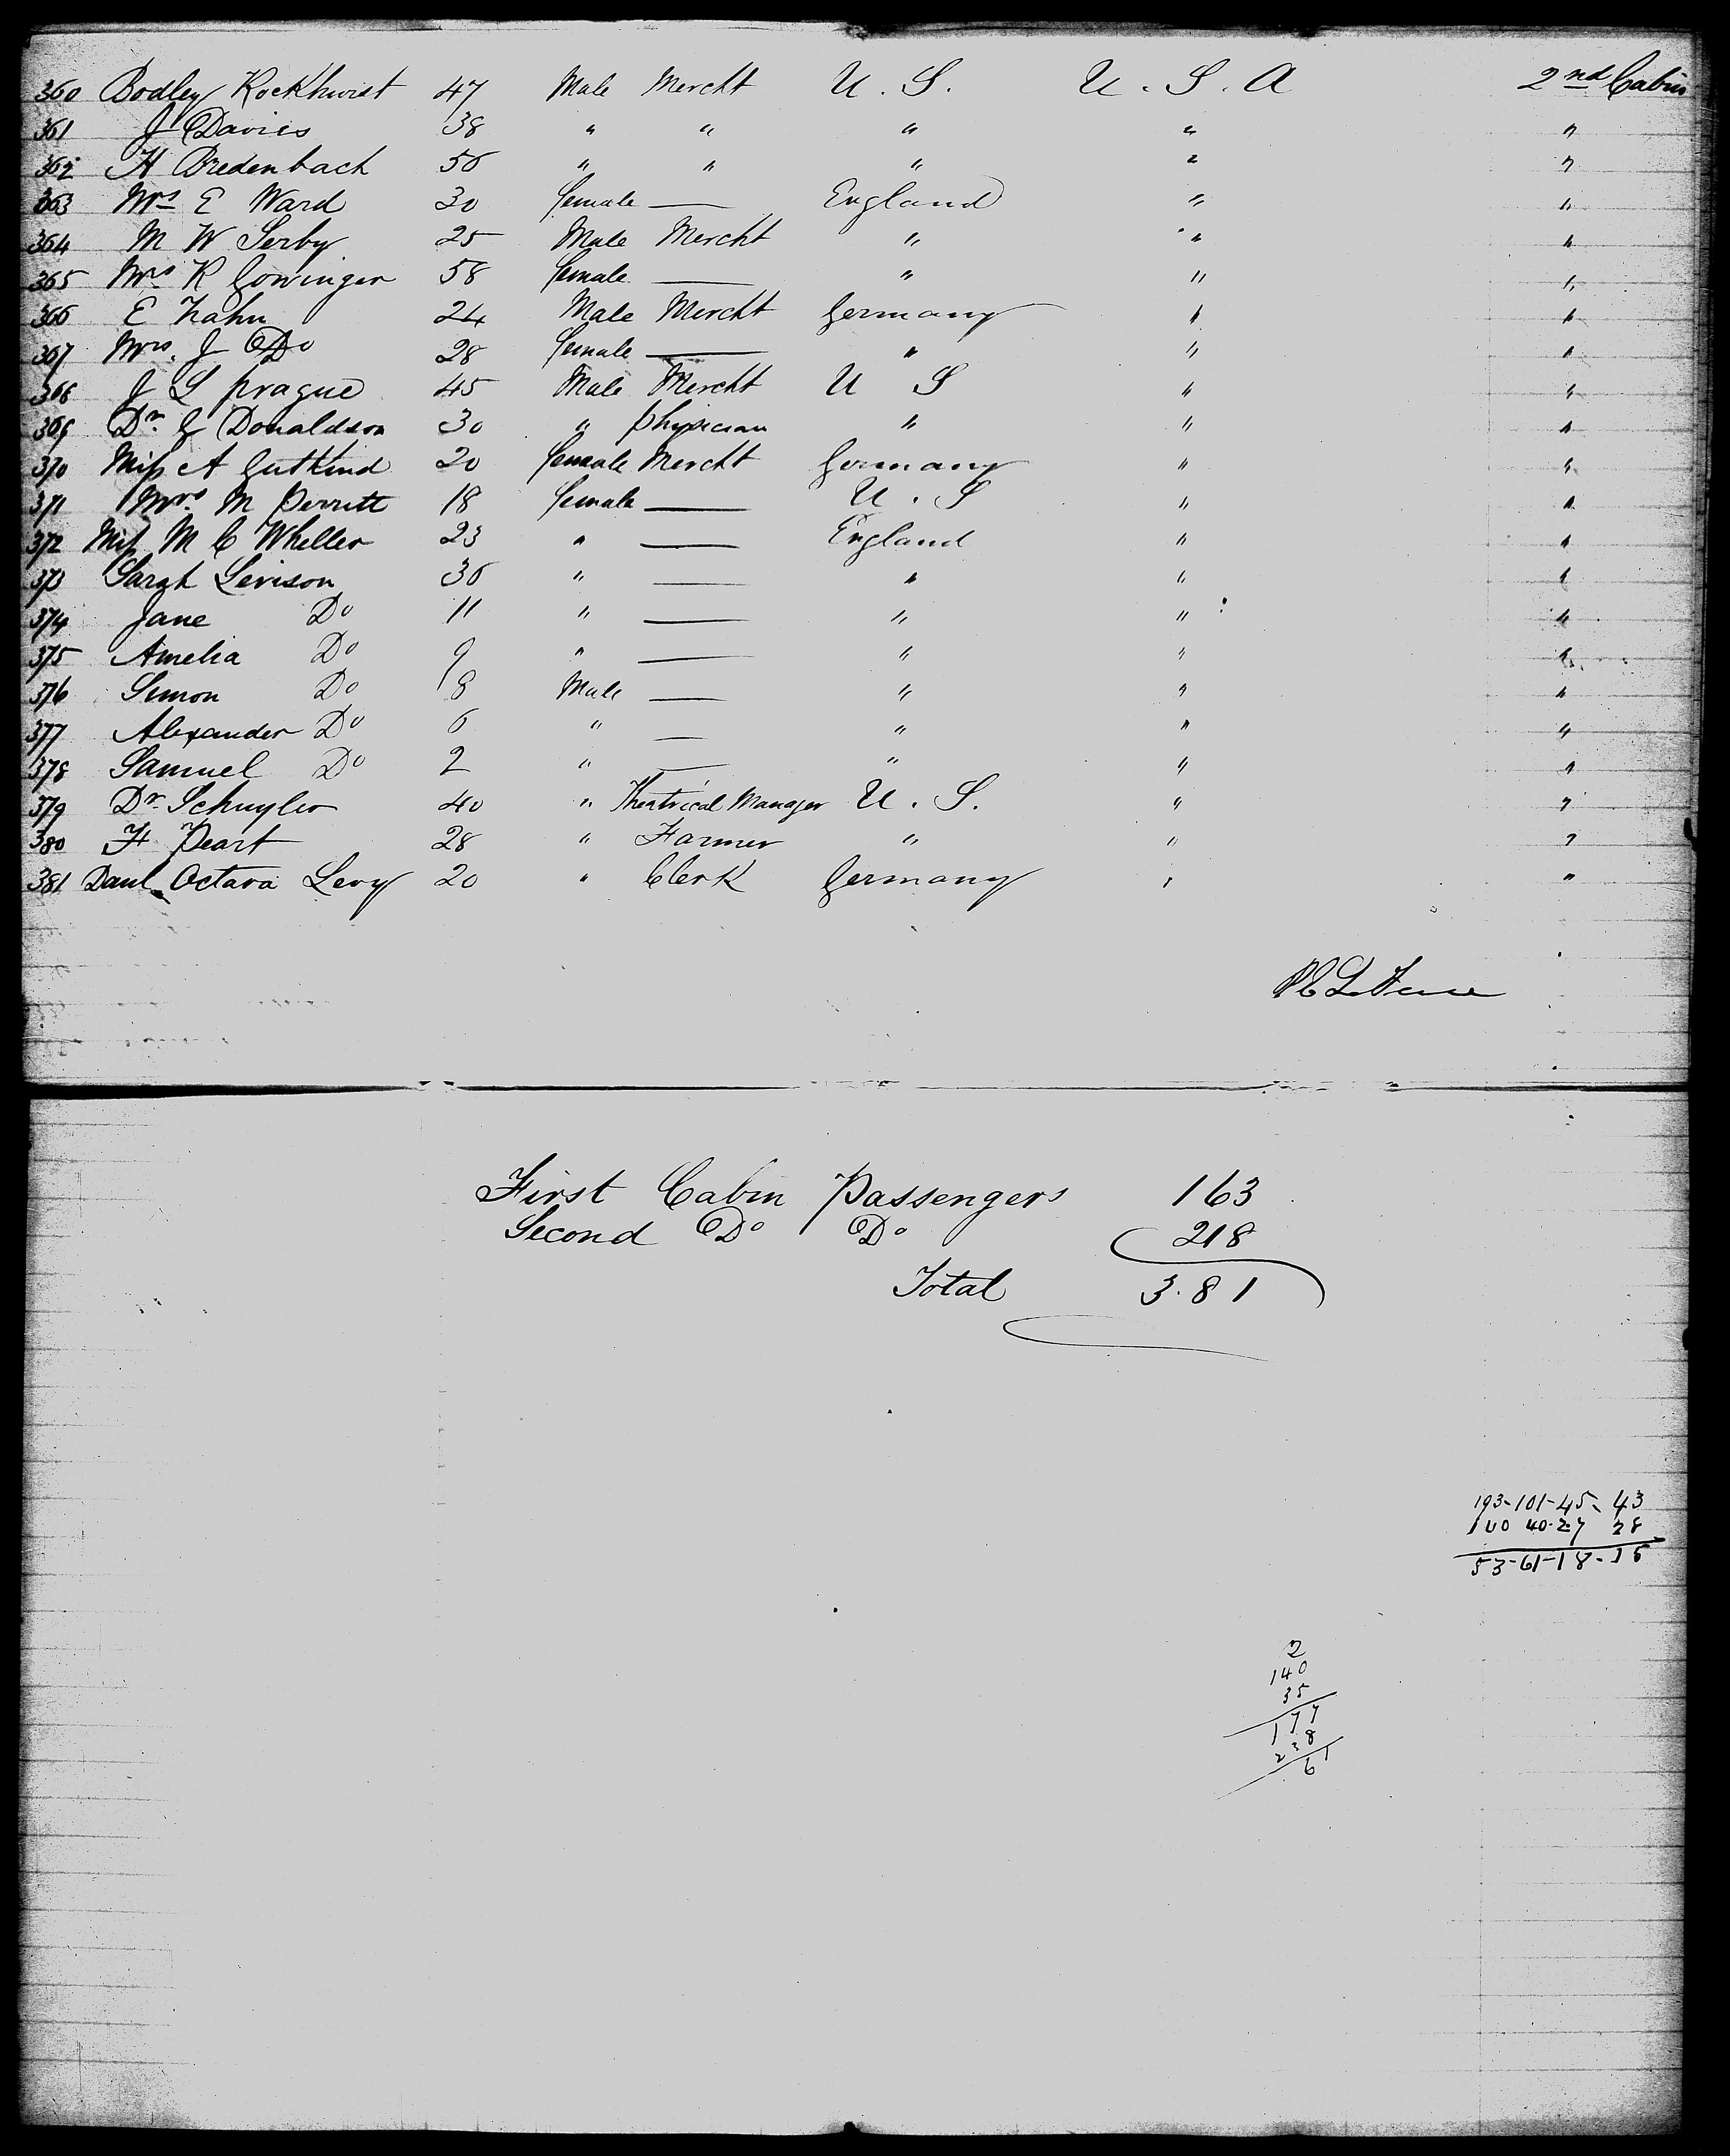 360 Bodley Rockhurst 47 Male Mercht U. S. U. S. A 2nd Cabin
361 J Davies 38 " " " " "
362 H Bredenbach 56 " " " " "
363 Mrs E Ward 30 female — England " "
364 M W Serby 25 Male Mercht " " "
365 Mrs R Gowinger 58 female — " " "
366 E Kahn 24 Male Mercht Germany " "
367 Mrs. J Do 28 female — " " "
368 J Sprague 45 Male Mercht U S " "
369 Dr. G Donaldson 30 " physician " " "
370 Miss A Gutkind 20 female Mercht Germany " "
371 Mrs. M Perritt 18 female — U. S " "
372 Miss M C Wheller 23 " — England " "
373 Sarah Levison 36 " — " " "
374 Jane Do 11 " — " " "
375 Amelia Do 9 " — " " "
376 Simon Do 8 Male — " " "
377 Alexander Do 6 " — " " "
378 Samuel Do 2 " — " " "
379 Dr. Schuyler 40 " Theatrical Manager U. S. " "
380 H Peart 28 " Farmer " " "
381 Danl Octava Levy 20 " Clerk Germany " "
First Cabin Passengers 163
Second Do Do 218
Total 3.81
193-101-45-43
140 40-27 28
53-61-18-15
2
140
35
177
238
61